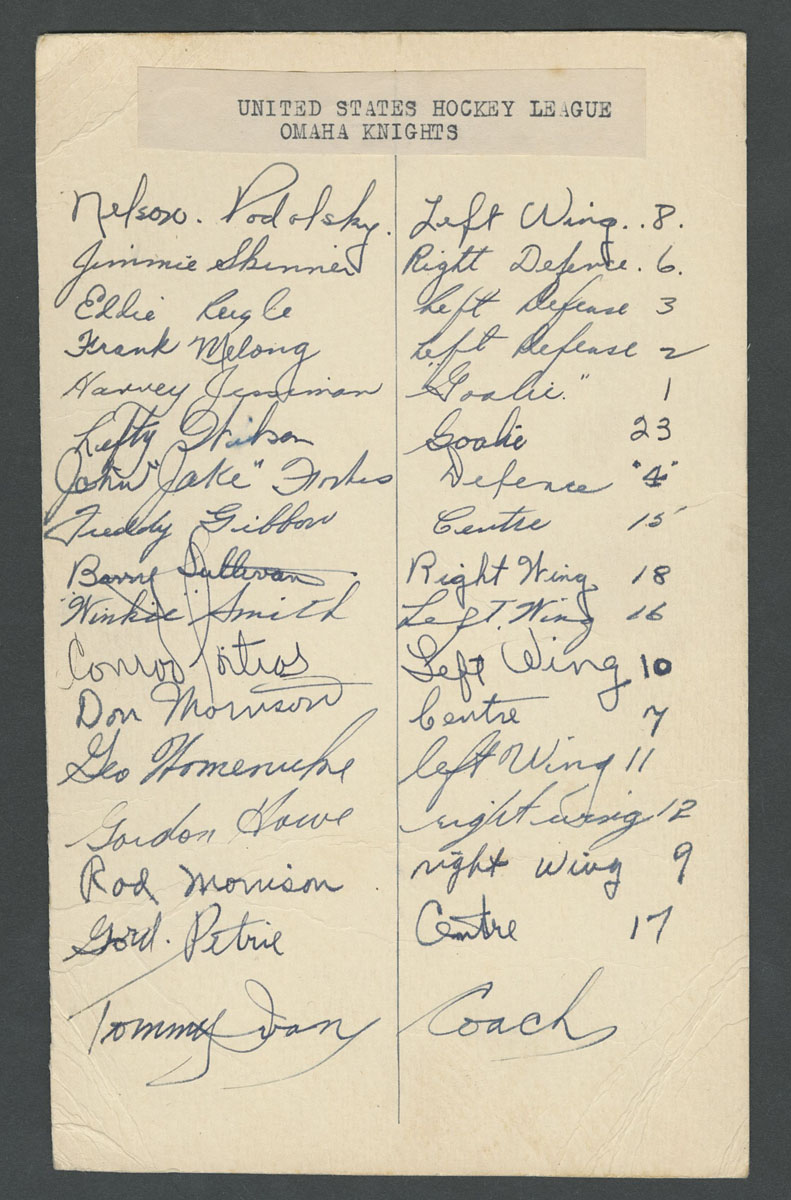 UNITED STATES HOCKEY LEAGUE
OMAHA KNIGHTS
Nelson. Podolsky. Left Wing.. 8.
Jimmie Skinner Right Defence. 6.
Eddie Reigle Left Defense 3
Frank Melong Left Defense 2
Harvey Jessiman "Goalie." 1
Lefty Wilson Goalie 23
John "Jake" Forbes Defence "4"
Freddy Gibbon Centre 15
Barry Sullivan Right Wing 18
"Winkie" Smith Left Wing 16
Conrod Left Wing 10
Don Morrison Centre 7
Geo Homeniuke left Wing 11
Gordon Howe right wing 12
Rod Morrison right wing 9
Gord. Petrie Centre 17
Tommy Ivan Coach